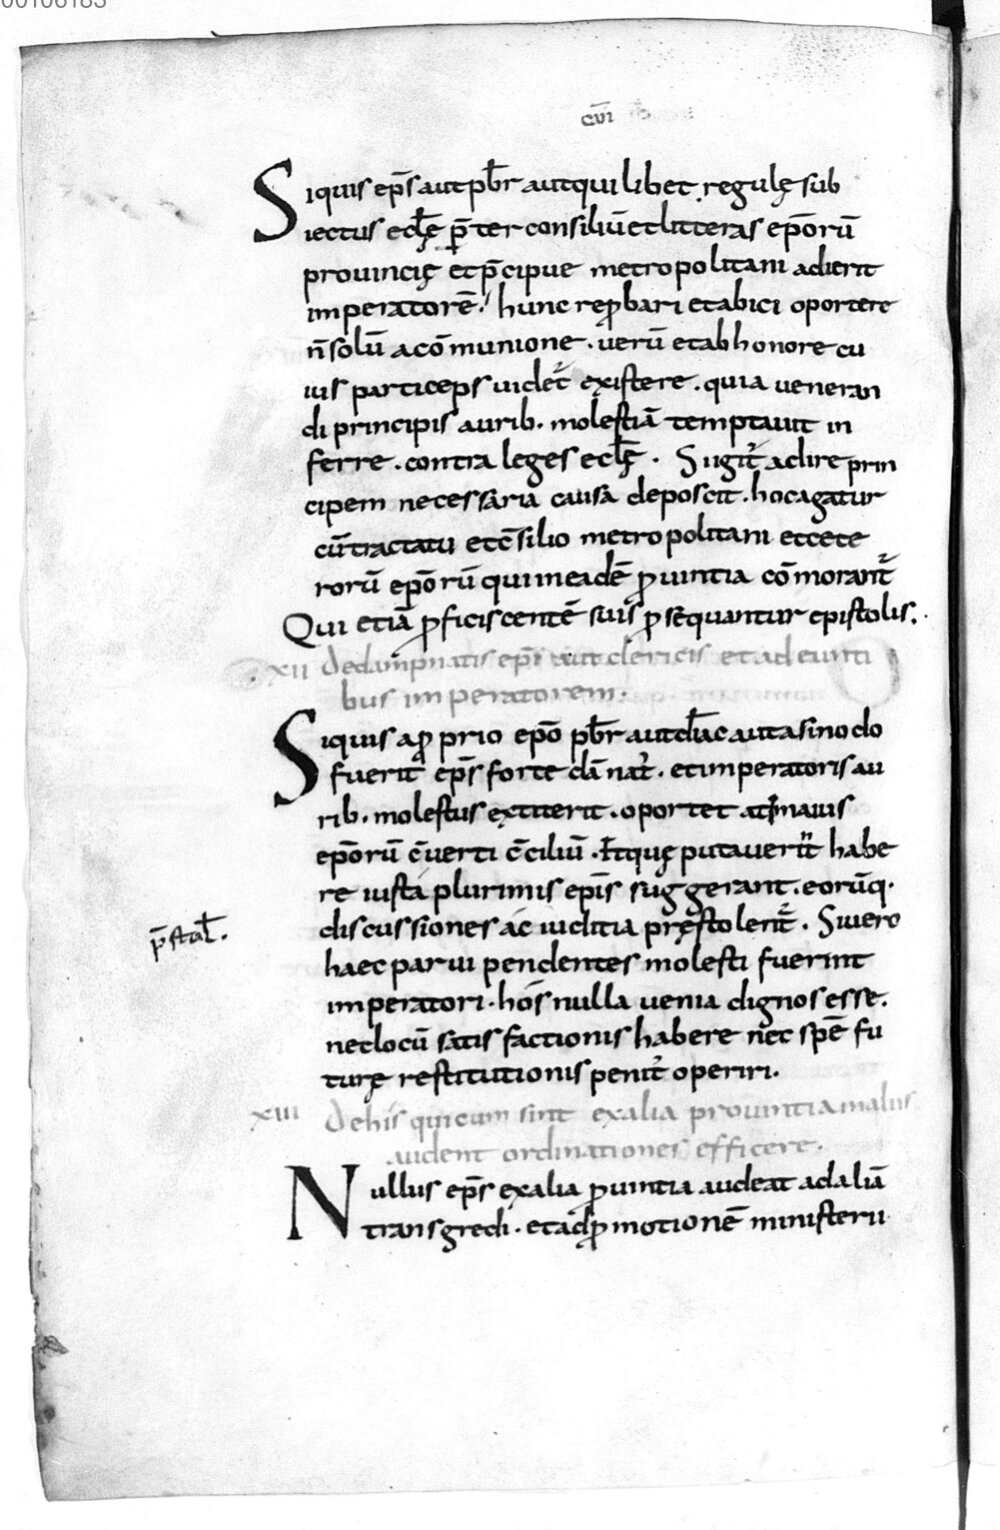 00106183
cvi
Siquis ep̄s aut pb̄r aut qui libet regulę sub
iectus eclę̄ p̄ter consiliū et litteras ep̄orū
prouincię et p̄cipue metropolitani adierit
imperatorē. hunc rep̱bari et abici oportere
n̄ solū a cōmunione. uerū et ab honore cu
ius particeps uidet̄ existere. quia ueneran
di principis aurib. molestiā temptauit in
ferre. contra leges eclę̄. Si igit̄ adire prin
cipem necessaria causa deposcit. hoc agatur
cū tractatu et c̄silio metropolitani et cete
rorū ep̄orū qui in eadē ꝓuintia cōmorant̄
Qui etiā ꝓficiscentē suis ꝓsequantur epistolis.
xii de dampnatis ep̄i aut clericis et adeunti
bus imperatorem.
Siquis a ꝓprio ep̄o pb̄r aut diac̄ aut a sinodo
fuerit ep̄s forte dānat̄. et imperatoris au
rib. molestus extiterit. oportet ad maius
ep̄orū c̄uerti c̄ciliū. Et quę putauerit habe
re iusta plurimis ep̄is suggerant. eorūq.
discussiones ac iuditia pręstolent̄. Si uero
p̄stol.
haec parui pendentes molesti fuerint
imperatori. hos nulla uenia dignos esse.
nec locū satisfactionis habere nec spē fu
turę restitutionis penit̄ operiri.
xiii de his qui cum sint ex alia prouintia in alus
audent ordinationes efficere.
Nullus ep̄s ex alia ꝓuintia audeat ad aliā
transgredi. et ad ꝓmotionē ministerii